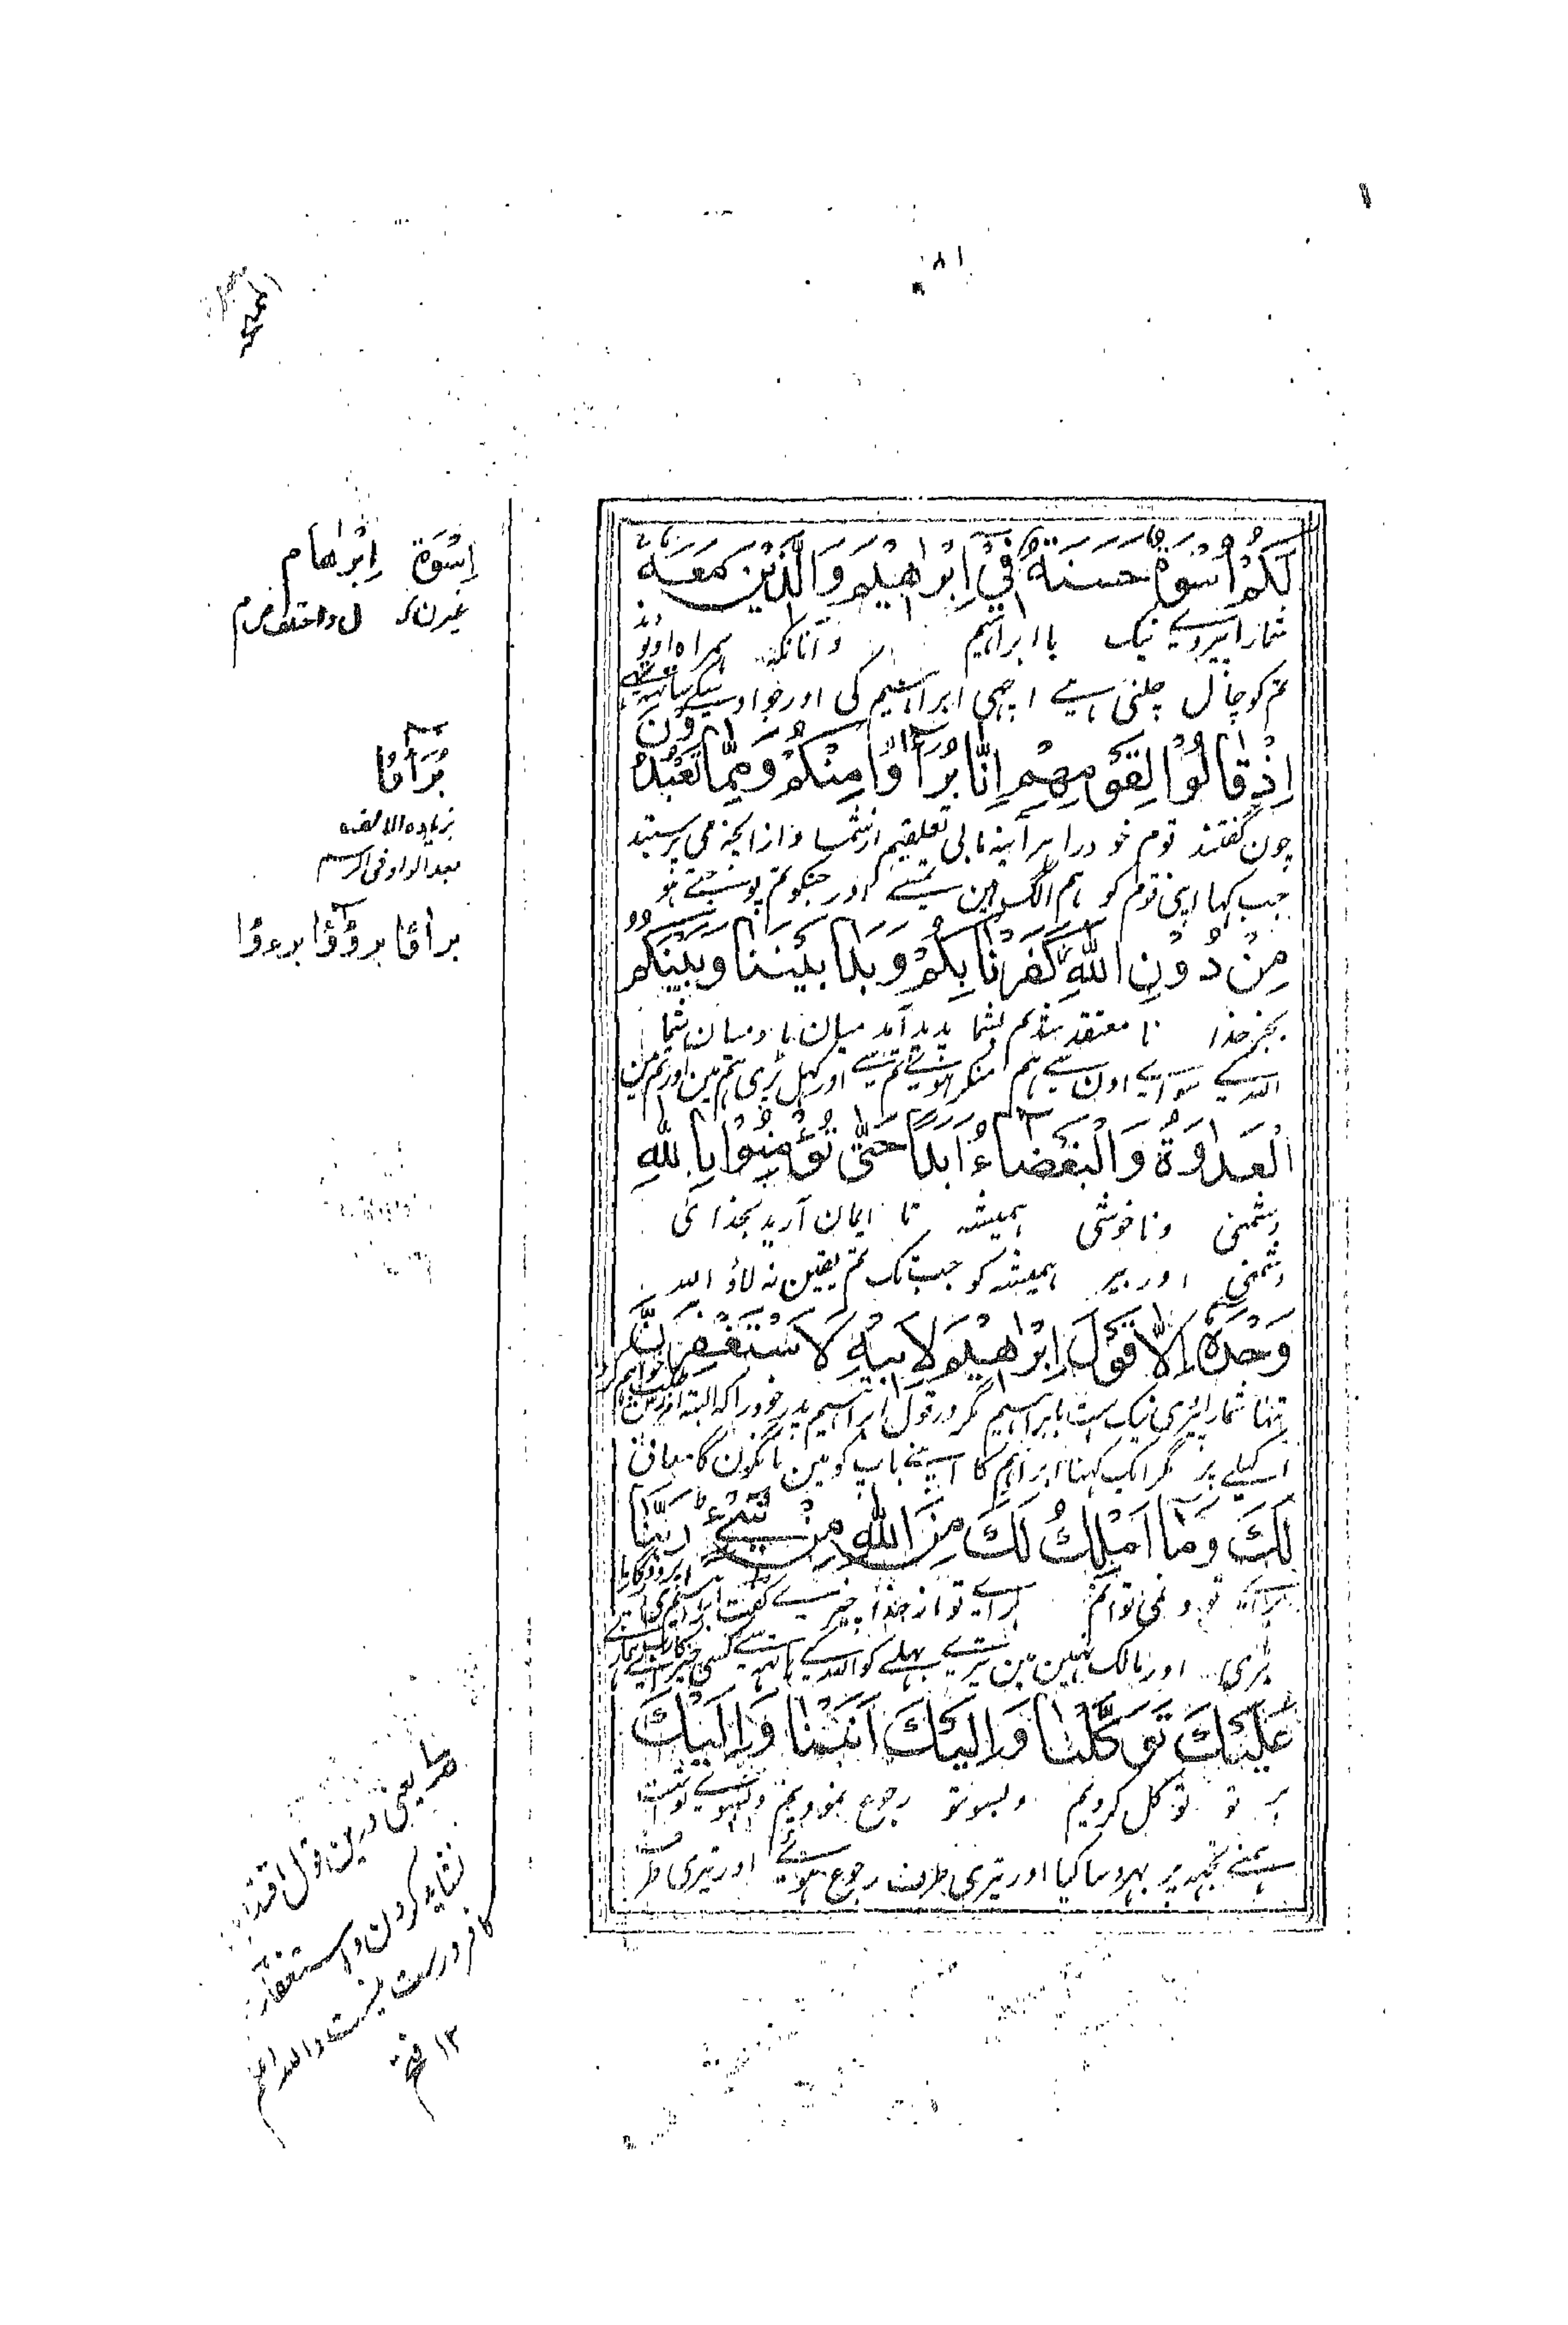 ٨١
لَكُمْ أُسْوَةٌ حَسَنَةٌ فِيْٓ اِبْرٰهِيْمَ وَالَّذِيْنَ مَعَهٗ
شمارا پیروی نیک با ابراہیم و آنانکہ ہمراہ اوبودند
تمکو چال چلنی ہے اچھی ابراہیم کی اور جو اوسکے ساتھ تھے
اِذْ قَالُوْا لِقَوْمِهِمْ اِنَّا بُرَءٰٓؤُا مِنْكُمْ وَمِمَّا تَعْبُدُوْنَ
چون گفتند قوم خود را ہر آینہ ما بی تعلقیم از شما و از آنچہ می پرستید
جب کہا اپنی قوم کو ہم الگ ہین تمسے اور جنکو تم پوجتے ہو
مِنْ دُوْنِ اللّٰهِ كَفَرْنَا بِكُمْ وَبَدَا بَيْنَنَا وَبَيْنَكُمُ
بجز خدا نا معتقد شدیم بشما پدید آمد میان ما و میان شما
اللہ کے سواے اون سے ہم منکر ہوئے تمسے اور کھل پڑی ہم مین اور تم مین
الْعَدَاوَةُ وَالْبَغْضَآءُ اَبَدًا حَتّٰى تُؤْمِنُوْا بِاللّٰهِ
دشمنی و ناخوشی ہمیشہ تا ایمان آرید بخدای
دشمنی اور بیر ہمیشہ کو جب تک تم یقین نہ لاؤ اللہ
وَحْدَهٗٓ اِلَّا قَوْلَ اِبْرٰهِيْمَ لِاَبِيْهِ لَاَسْتَغْفِرَنَّ
تنہا شمارا پیروی نیک ست بابراہیم مگر در قول ابراہیم پدر خود را کہ البتہ آمرزش طلب خواہم کرد
اکیلے پر مگر ایک کہنا ابراہیم کا اپنے باپ کو مین مانگون گا معافی
لَكَ وَمَآ اَمْلِكُ لَكَ مِنَ اللّٰهِ مِنْ شَيْءٍ رَبَّنَا
براے تو و نمی توانم براے تو از خدا چیزے گفت ابراہیم ای پروردگار ما
تیری اور مالک نہین مین تیرے بھلے کو اللہ کے ہاتھ سے کسی چیز کا اے رب ہمارے
عَلَيْكَ تَوَكَّلْنَا وَاِلَيْكَ اَنَبْنَا وَاِلَيْكَ
بر تو توکل کردیم و بسوے تو رجوع نمودیم و بسوے تست
ہمنے تجھ پر بھروسا کیا اور تیری طرف رجوع ہوئے اور تیری طرف
اِسْوَة اِبْرَاهام
بزیادہ الالف
بعد الواو فی الرسم
یعنی درین قول اقتدا
نشاید کردن و استغفار
کافر درست نیست واللہ اعلم
١٢ فتح